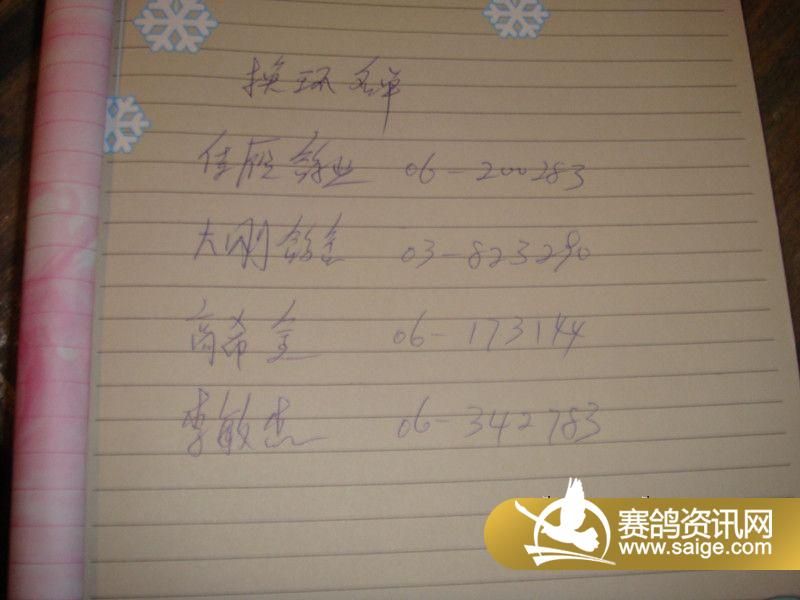 换环名单
佳辰鸽业 06-200283
大刚鸽舍 03-823290
高希全 06-173144
李敏杰 06-342783
赛鸽资讯网
www.saige.com